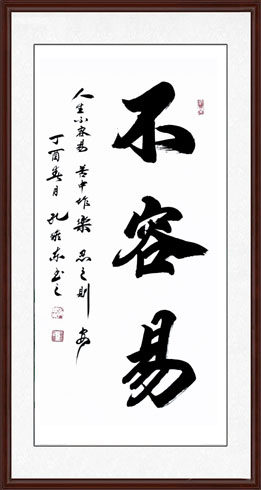 不容易
人生不容易 苦中作樂 忍之則安
丁酉春月 孔依东书之